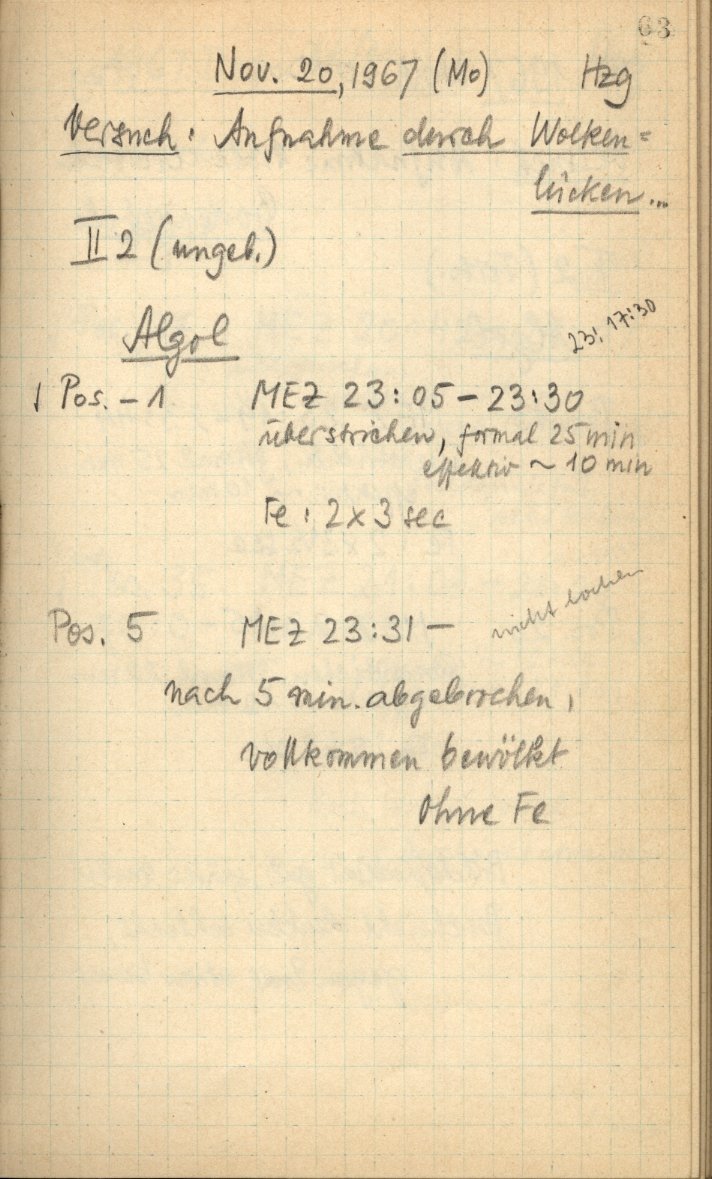 63
Nov. 20, 1967 (Mo) Hzg
Versuch: Aufnahme durch Wolken=
lücken...
II 2 (ungeb.)
Algol
23:17:30
Pos. - 1 MEZ 23:05 - 23:30
überstrichen, formal 25 min
effektiv ~ 10 min
Fe: 2 x 3 sec
nicht
Pos. 5 MEZ 23:31 -
nach 5 min. abgebrochen,
vollkommen bewölkt
ohne Fe